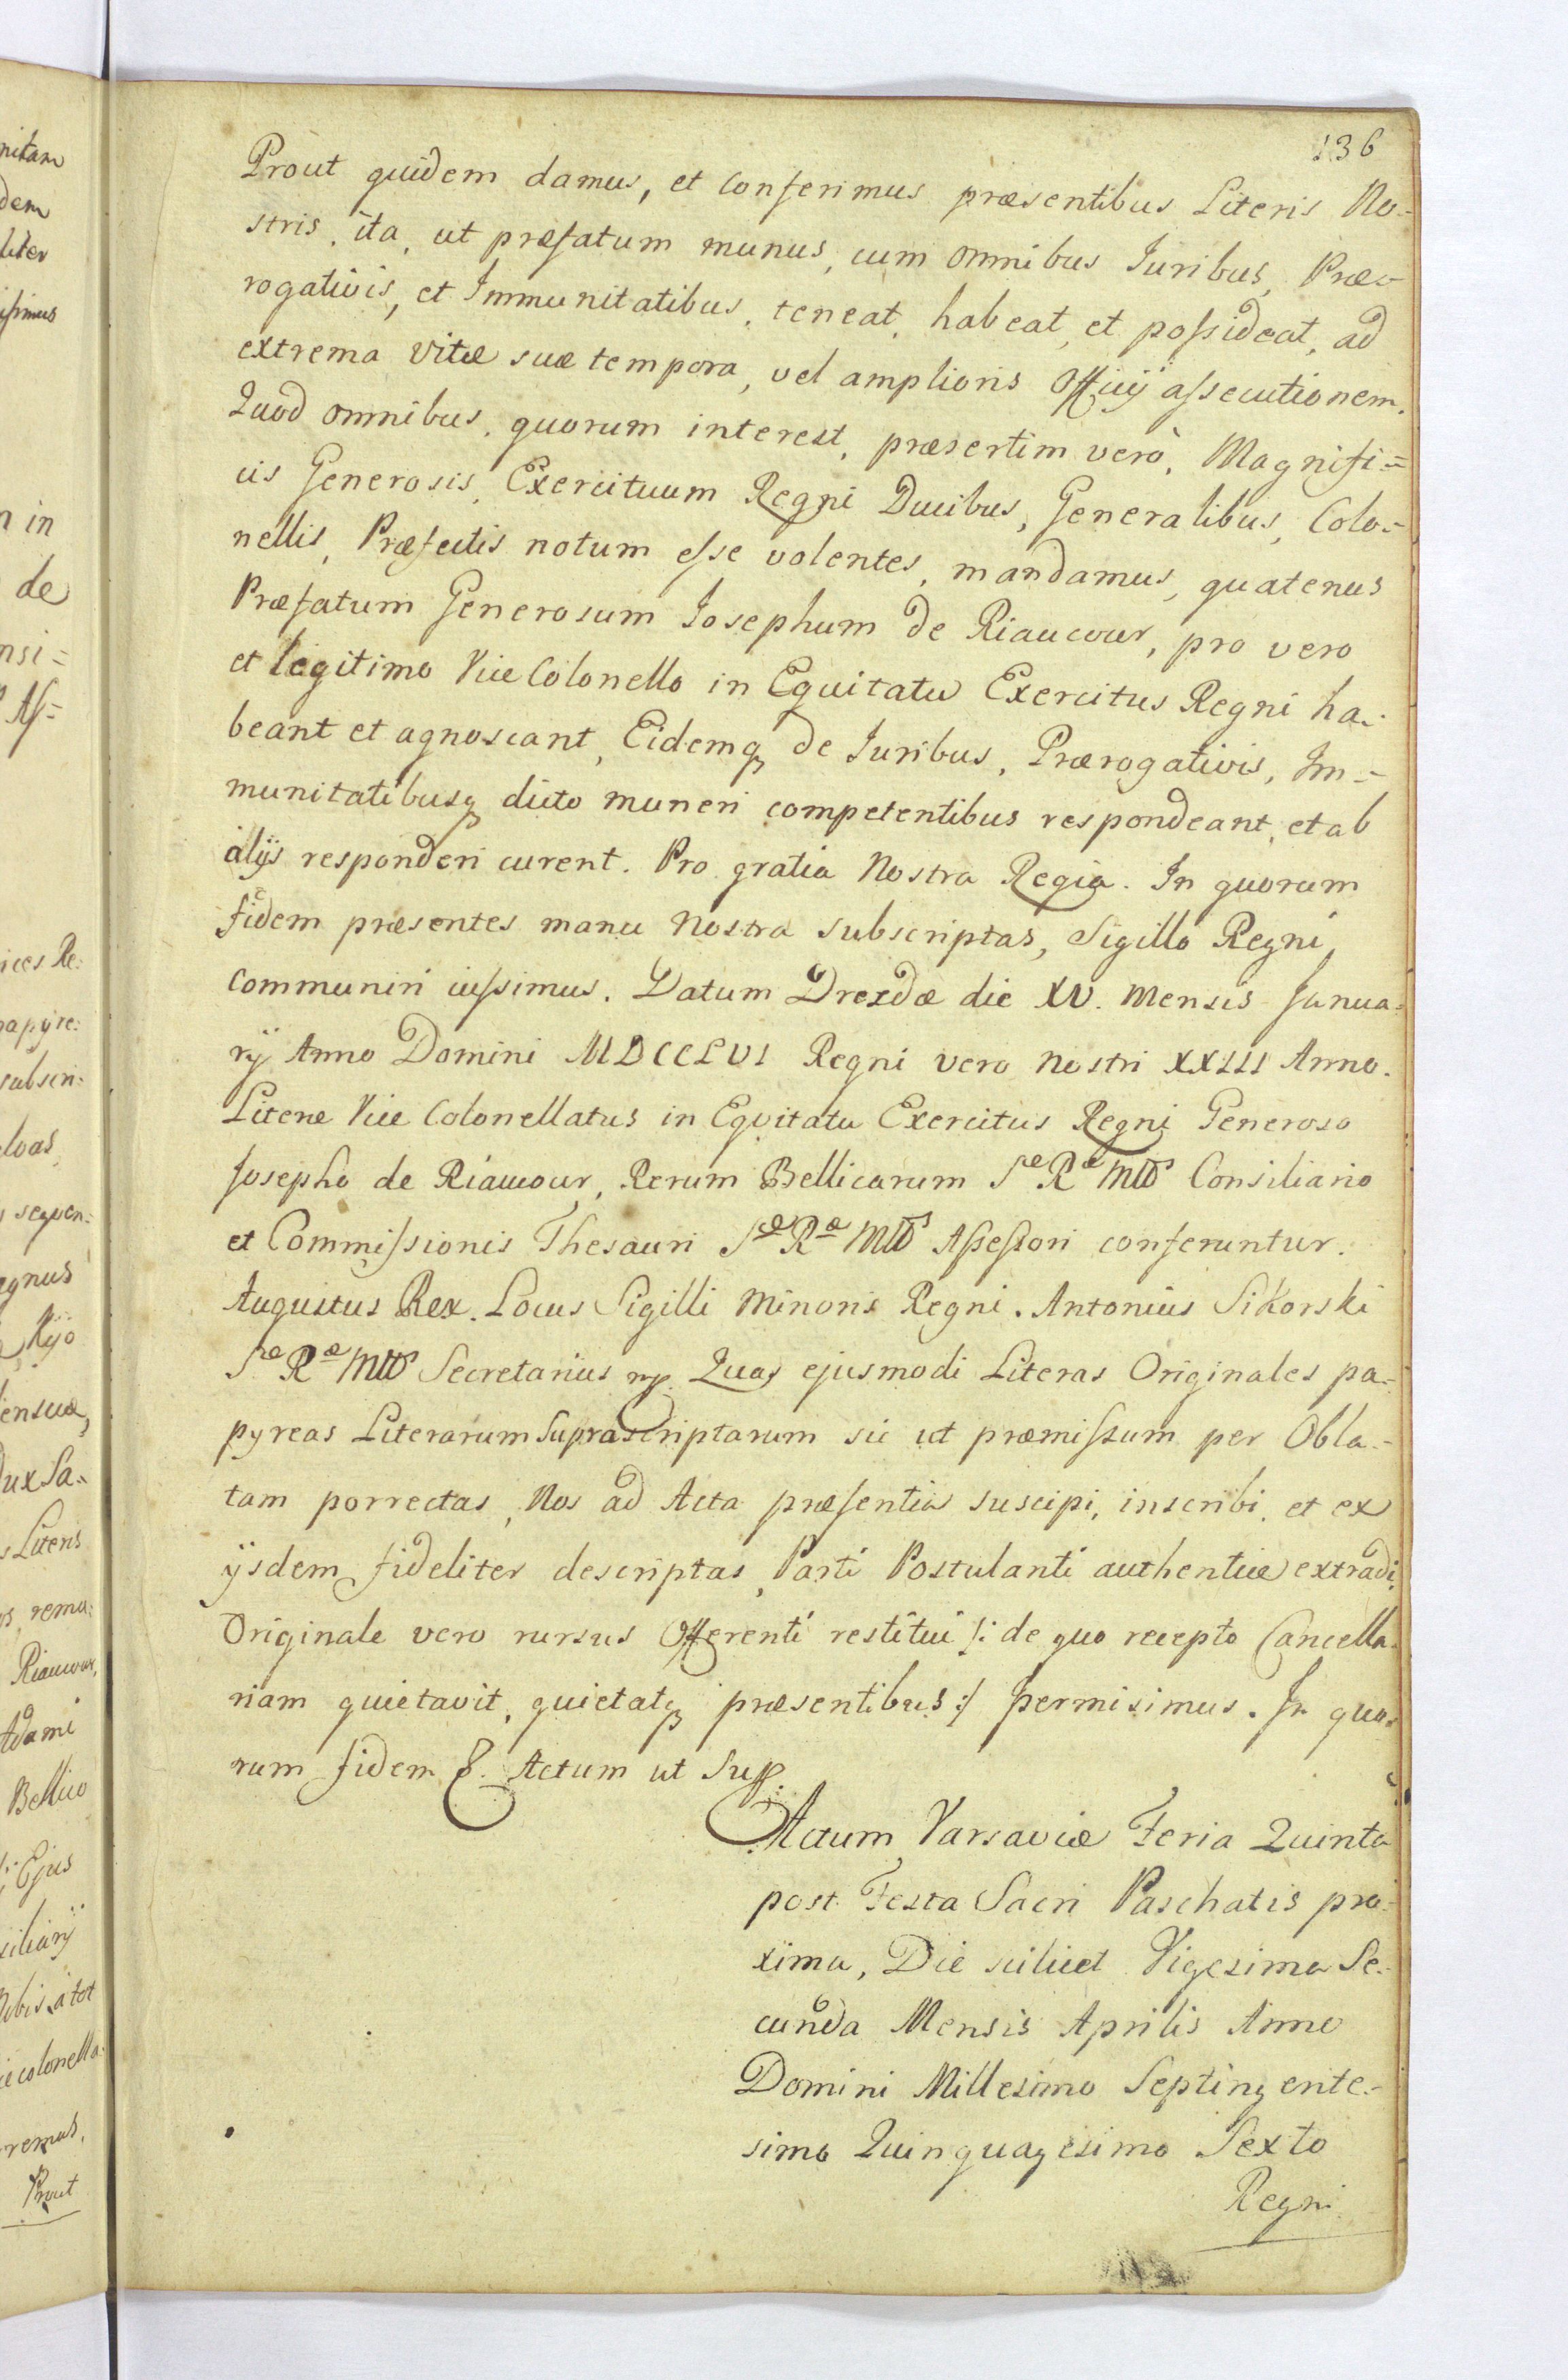 136
Prout quidem damus, et conferimus præsentibus Literis No-
stris, ita, ut præfatum munus, cum omnibus Juribus, Præ-
rogativis, et Immunitatibus, teneat, habeat, et possideat, ad
extrema vitæ suæ tempora, vel amplioris Officij assecutionem.
Quod omnibus, quorum interest, præsertim verò, Magnifi=
cis Generosis, Exercituum Regni Ducibus, Generalibus, Colo=
nellis, Præfectis notum esse volentes, mandamus, quatenus
Præfatum Generosum Josephum de Riaucour, pro vero
et legitimo Vice Colonello in Equitatu Exercitus Regni ha-
beant et agnoscant, Eidemq de Juribus, Prærogativis, Im=
munitatibusq dicto muneri competentibus respondeant, et ab
alijs responderi curent. Pro gratia Nostra Regia. In quorum
fidem præsentes manu Nostra subscriptas, Sigillo Regni
communiri iussimus. Datum Drezdæ die XV. Mensis Janua-
rij Anno Domini MDCCLVI Regni vero Nostri XXIII Anno.
Literæ Vice Colonellatus in Eqvitatu Exercitus Regni Generoso
Josepho de Riaucour, Rerum Bellicarum Sæ Ræ Mttis Consiliario
et Commissionis Thesauri Sæ Ræ Mttis Assessori conferuntur.
Augustus Rex. Locus Sigilli Minoris Regni. Antonius Sikorski
Sæ Ræ Mttis Secretarius mp. Quas ejusmodi Literas Originales pa-
pyreas Literarum Suprascriptarum sic ut præmissum per Obla-
tam porrectas, Nos ad Acta præsentia suscipi, inscribi, et ex
ijsdem fideliter descriptas, Parti Postulanti authentice extradi,
Originale vero rursus Offerenti restitui /: de quo recepto Cancella-
riam quietavit, quietatq præsentibus :/ permisimus. In quo-
rum fidem &. Actum ut Sup.
Actum Varsaviæ Feria Quinta
post Festa Sacri Paschatis pro-
xima, Die scilicet Vigesima Se-
cunda Mensis Aprilis Anno
Domini Millesimo Septingente-
simo Quinquagesimo Sexto
Regni